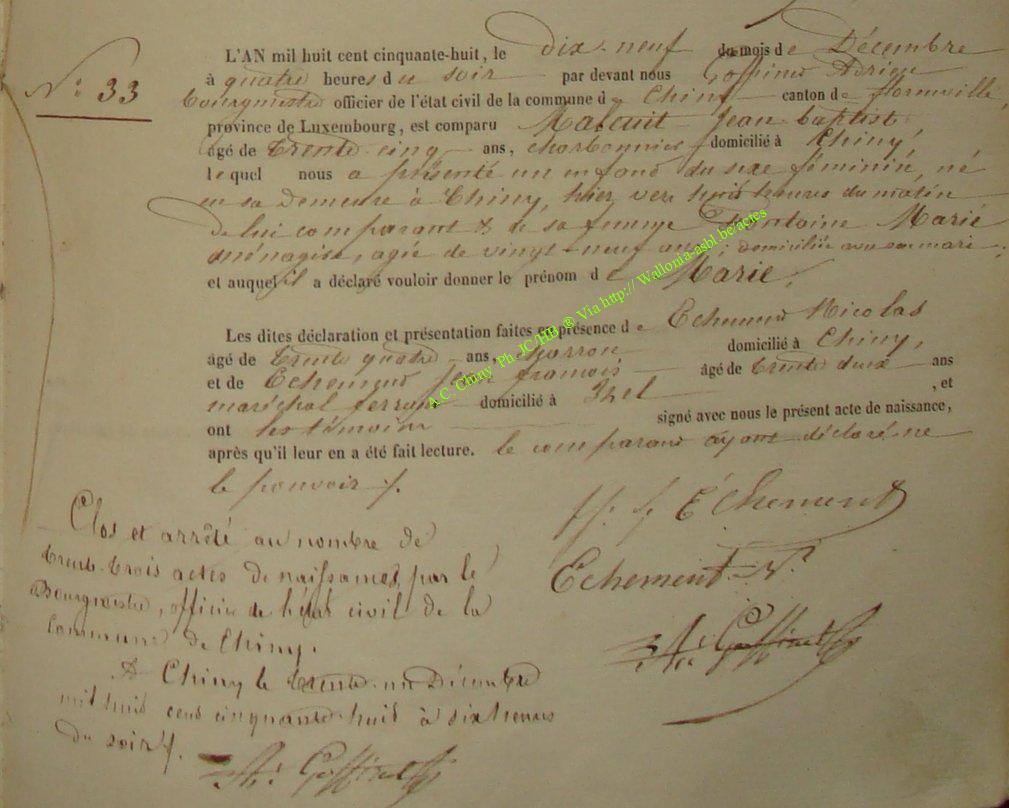 N° 33
L'AN mil huit cent cinquante-huit, le dix-neuf du mois de Décembre
à quatre heures du soir par devant nous Goffinet Adrien
bourgmestre officier de l'état civil de la commune de Chiny canton de florenville,
province de Luxembourg, est comparu Jean baptiste
âgé de trente cinq ans, charbonnier domicilié à Chiny,
lequel nous a présenté un enfant du sexe féminin, né
en sa demeure à Chiny, hier vers huit heures du matin
de lui comparant & de sa femme Marie
ménagère, agée de vingt-neuf ans, domiciliée avec son mari,
et auquel il a déclaré vouloir donner le prénom de Marie.
Les dites déclaration et présentation faites en présence de Echement Nicolas
âgé de trente quatre ans, charron domicilié à Chiny,
et de Echement Jean françois âgé de trente deux ans
maréchal ferrant domicilié à Izel, et
ont les témoins signé avec nous le présent acte de naissance,
après qu'il leur en a été fait lecture. le comparant ayant déclaré ne
le pouvoir.
j. f. Echement
Echement N.
Ad. Goffinet
Clos et arrêté au nombre de
trente-trois actes de naissances, par le
Bourgmestre, officier de l'état civil de la
Commune de Chiny.
A Chiny le trente-un Décembre
mil huit cent cinquante-huit à six heures
du soir.
Ad. Goffinet
A.C. Chiny Ph JC/HB ® Via http://Wallonia-asbl.be/actes